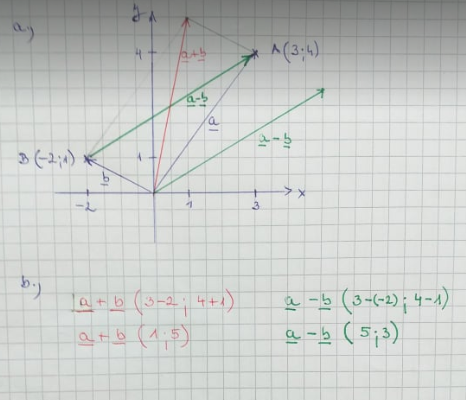 a.)
y
4
a+b
A(3;4)
a-b
a
a-b
B(-2;1)
1
b
-2
1
3
x
b.)
a + b (3-2; 4+1)
a - b (3-(-2); 4-1)
a + b (1;5)
a - b (5;3)